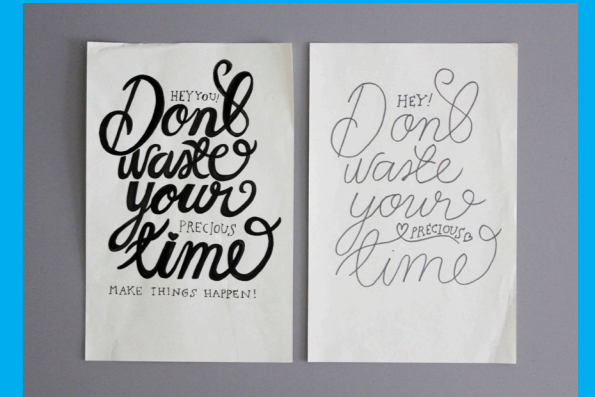 HEY YOU!
Dont
waste
your
PRECIOUS
time
MAKE THINGS HAPPEN!
HEY!
Dont
waste
your
PRECIOUS
time